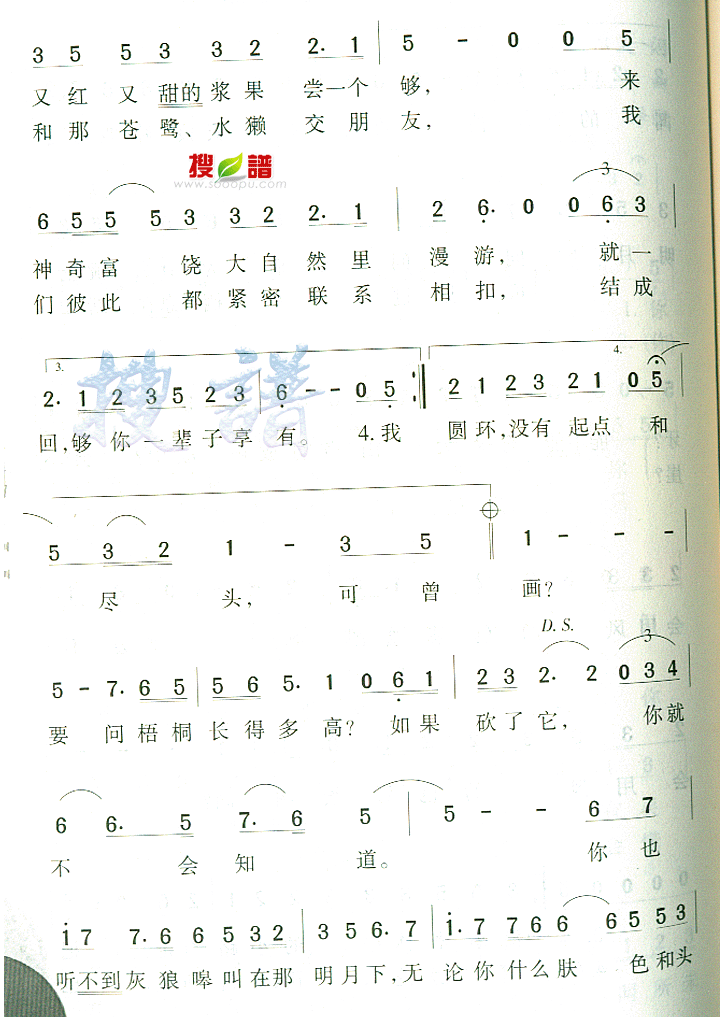 3 5 5 3 3 2 2. 1 | 5 - 0 0 5
又红又甜的浆果 尝一个够, 来
和那苍鹭、水獭 交朋友, 我
搜谱
www.sooopu.com
3
6 5 5 5 3 3 3 2 2. 1 | 2 6. 0 0 6 3
神奇富 饶大自然里 漫游, 就一
们彼此 都紧密联系 相扣, 结成
3. 4.
2. 1 2 3 5 2 3 | 6 - - 0 5 :| 2 1 2 3 2 1 0 5
回,够你一辈子享有。 4.我 圆环,没有起点 和
搜谱
5 3 2 1 - 3 5 | 1 - -
尽 头, 可曾 画?
D. S.
3
5 - 7. 6 5 | 5 6 5. 1 0 6 1 | 2 3 2. 2 0 3 4
要 问梧桐长得多高? 如果 砍了它, 你就
6 6. 5 7. 6 5 | 5 - - 6 7
不 会知 道。 你也
1 7 7. 6 6 5 3 2 | 3 5 6. 7 | 1. 7 7 6 6 6 5 5 3
听不到灰狼嗥叫在那 明月下,无 论你什么肤 色和头